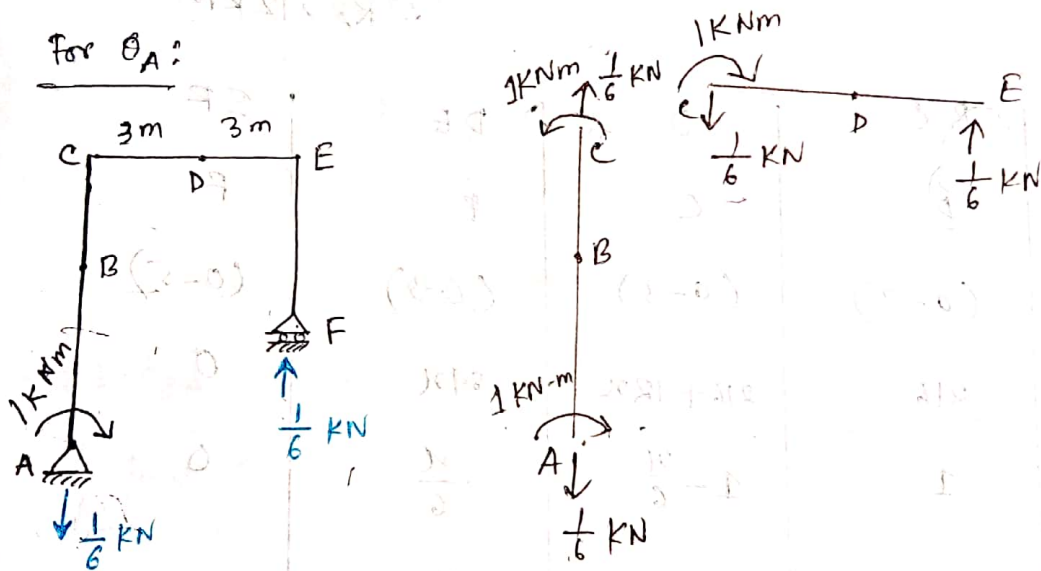 For θA:
3m 3m
C D E
B
F
1 KNm
A
1/6 KN
1/6 KN
1KNm 1/6 KN
C
B
1 KN-m
A
1/6 KN
1KNm
C D E
1/6 KN
1/6 KN